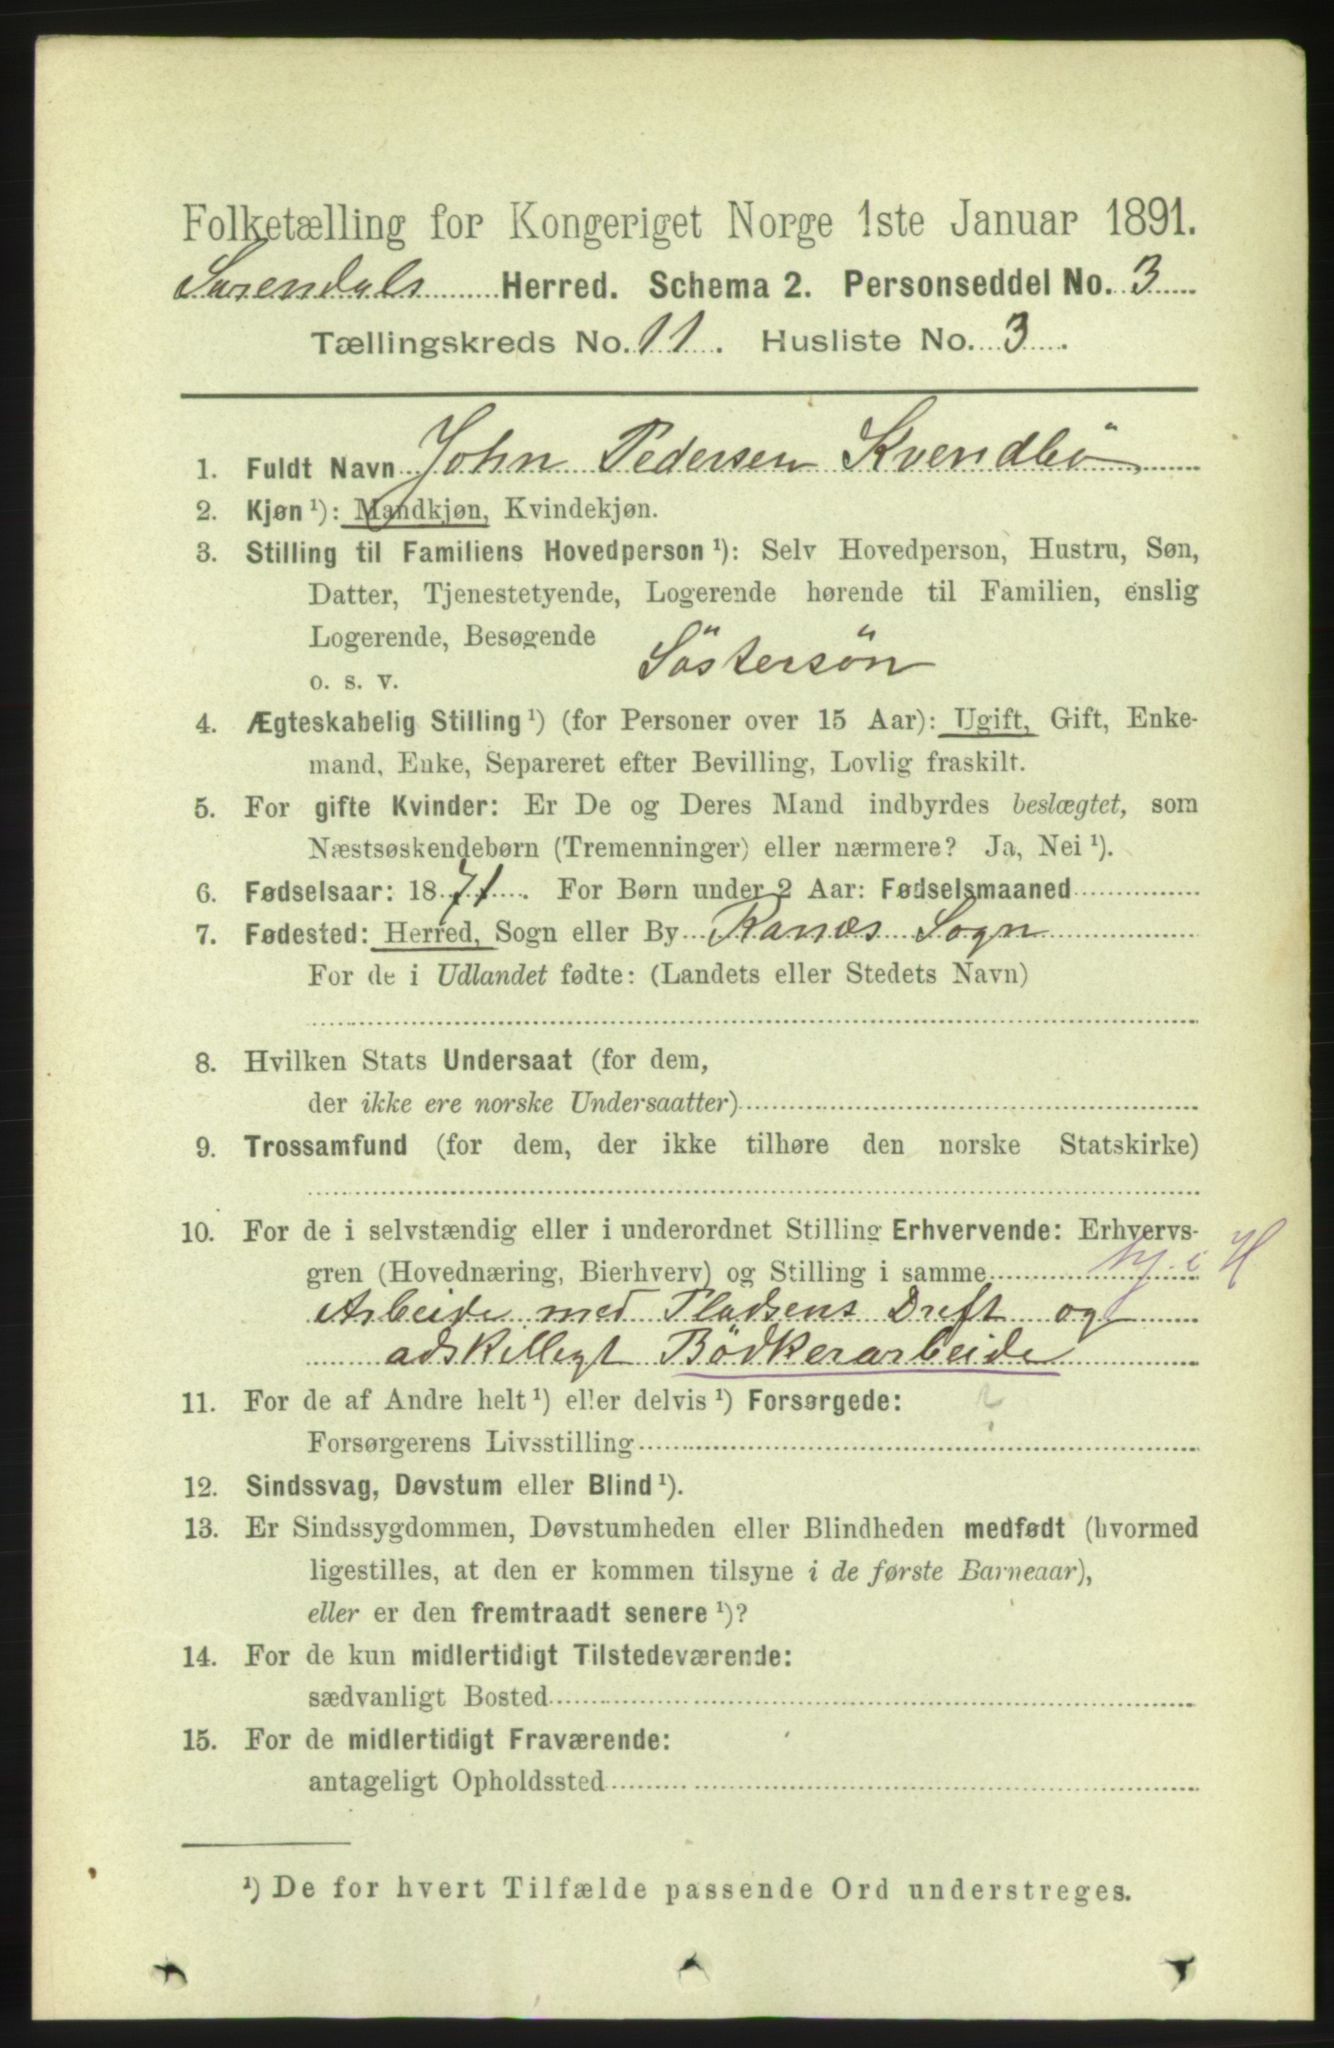 Folketælling for Kongeriget Norge 1ste Januar 1891.
Surendals Herred. Schema 2. Personseddel No. 3
Tællingskreds No. 11. Husliste No. 3.
1. Fuldt Navn John Pedersen Kvendbö
2. Kjøn ¹): Mandkjøn, Kvindekjøn.
3. Stilling til Familiens Hovedperson ¹): Selv Hovedperson, Hustru, Søn,
Datter, Tjenestetyende, Logerende hørende til Familien, enslig
Logerende, Besøgende
o. s. v. Söstersön
4. Ægteskabelig Stilling ¹) (for Personer over 15 Aar): Ugift, Gift, Enke-
mand, Enke, Separeret efter Bevilling, Lovlig fraskilt.
5. For gifte Kvinder: Er De og Deres Mand indbyrdes beslægtet, som
Næstsøskendebørn (Tremenninger) eller nærmere? Ja, Nei ¹).
6. Fødselsaar: 1871. For Børn under 2 Aar: Fødselsmaaned
7. Fødested: Herred, Sogn eller By Ranæs Sogn
For de i Udlandet fødte: (Landets eller Stedets Navn)
8. Hvilken Stats Undersaat (for dem,
der ikke ere norske Undersaatter)
9. Trossamfund (for dem, der ikke tilhøre den norske Statskirke)
10. For de i selvstændig eller i underordnet Stilling Erhvervende: Erhvervs-
gren (Hovednæring, Bierhverv) og Stilling i samme
Arbeide med Pladsens Drift og
adskilligt Bödkerarbeide
11. For de af Andre helt ¹) eller delvis ¹) Forsørgede:
Forsørgerens Livsstilling
12. Sindssvag, Døvstum eller Blind ¹).
13. Er Sindssygdommen, Døvstumheden eller Blindheden medfødt (hvormed
ligestilles, at den er kommen tilsyne i de første Barneaar),
eller er den fremtraadt senere ¹)?
14. For de kun midlertidigt Tilstedeværende:
sædvanligt Bosted
15. For de midlertidigt Fraværende:
antageligt Opholdssted
¹) De for hvert Tilfælde passende Ord understreges.